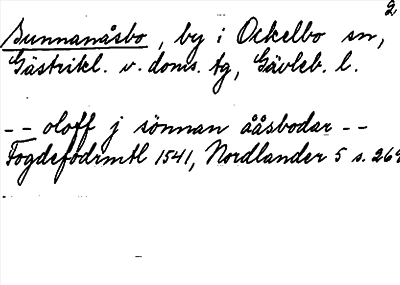 2
Sunnanåsbo, by i Ockelbo sn,
Gästrikl. v. doms. tg, Gävleb. l.
-- oloff j sönnan ååsbodar --
Fogdefodrmtl 1541, Nordlander 5 s. 269